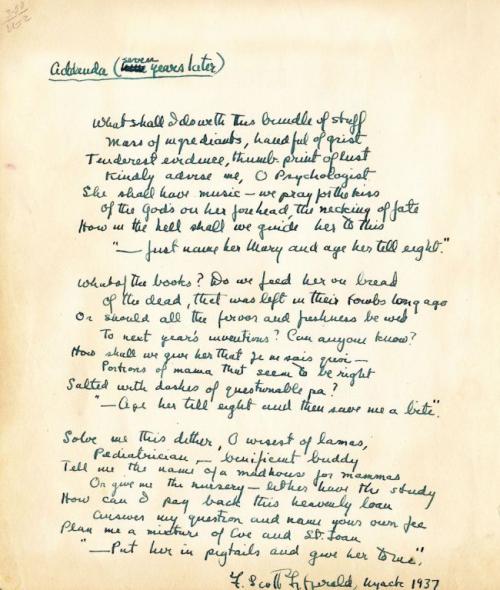 Addenda (seven years later)
What shall I do with this bundle of stuff
Mass of ingrediants, handful of grist
Tenderest evidence, thumb-print of lust
Kindly advise me, O Psychologist
She shall have music — we pray for the kiss
Of the God's on her forehead, the necking of fate
How in the hell shall we guide her to this
"— Just name her Mary and age her till eight."
What of the books? Do we feed her on bread
of the dead, that was left in their tombs long ago
Or should all the fervor and freshness be wed
To next year's inventions? Can anyone know?
How shall we give her that je ne sais quoi —
Portions of mama that seem to be right
Salted with dashes of questionable pa?
"— Age her till eight and then save me a bite."
Solve me this dither, O wisest of lamas,
Pediatrician — benificent buddy
Tell me the name of a madhouse for mammas
Or give me the nursery — let her have the study
How can I pay back this heavenly loan
Answer my question and name your own fee
Plan me a mixture of Eve and St. Joan
"— Put her in pigtails and give her to me."
F. Scott Fitzgerald, Nyack 1937